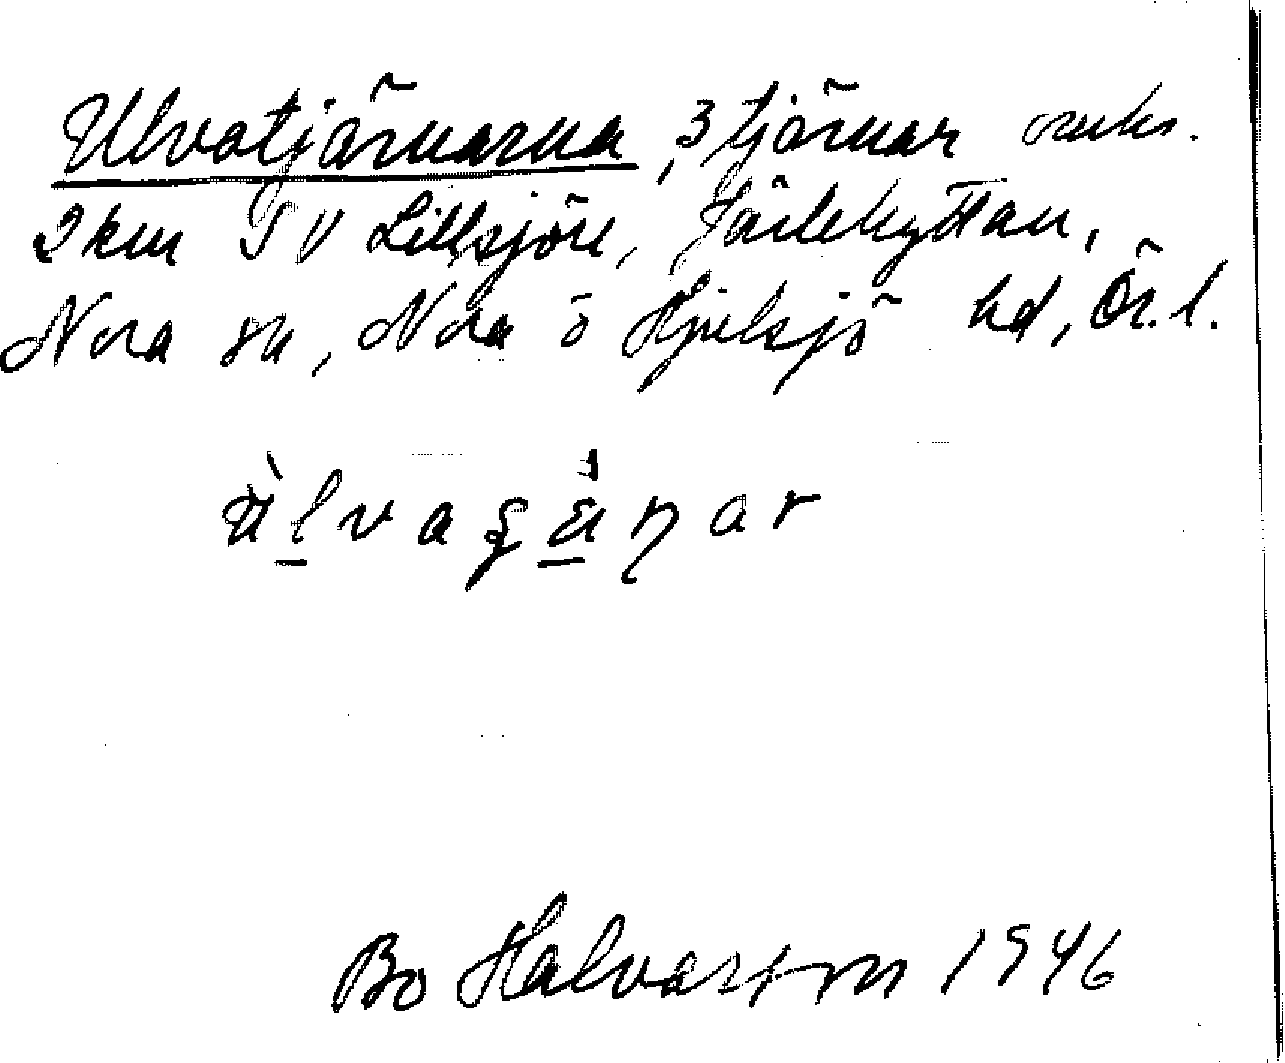 Ulvatjärnarna, 3 tjärnar omkr.
2 km SV Lillsjön, Järlehyttan,
Nora sn, Nora o Hjulsjö hd, Ör. l.
Bo Halvarson 1946